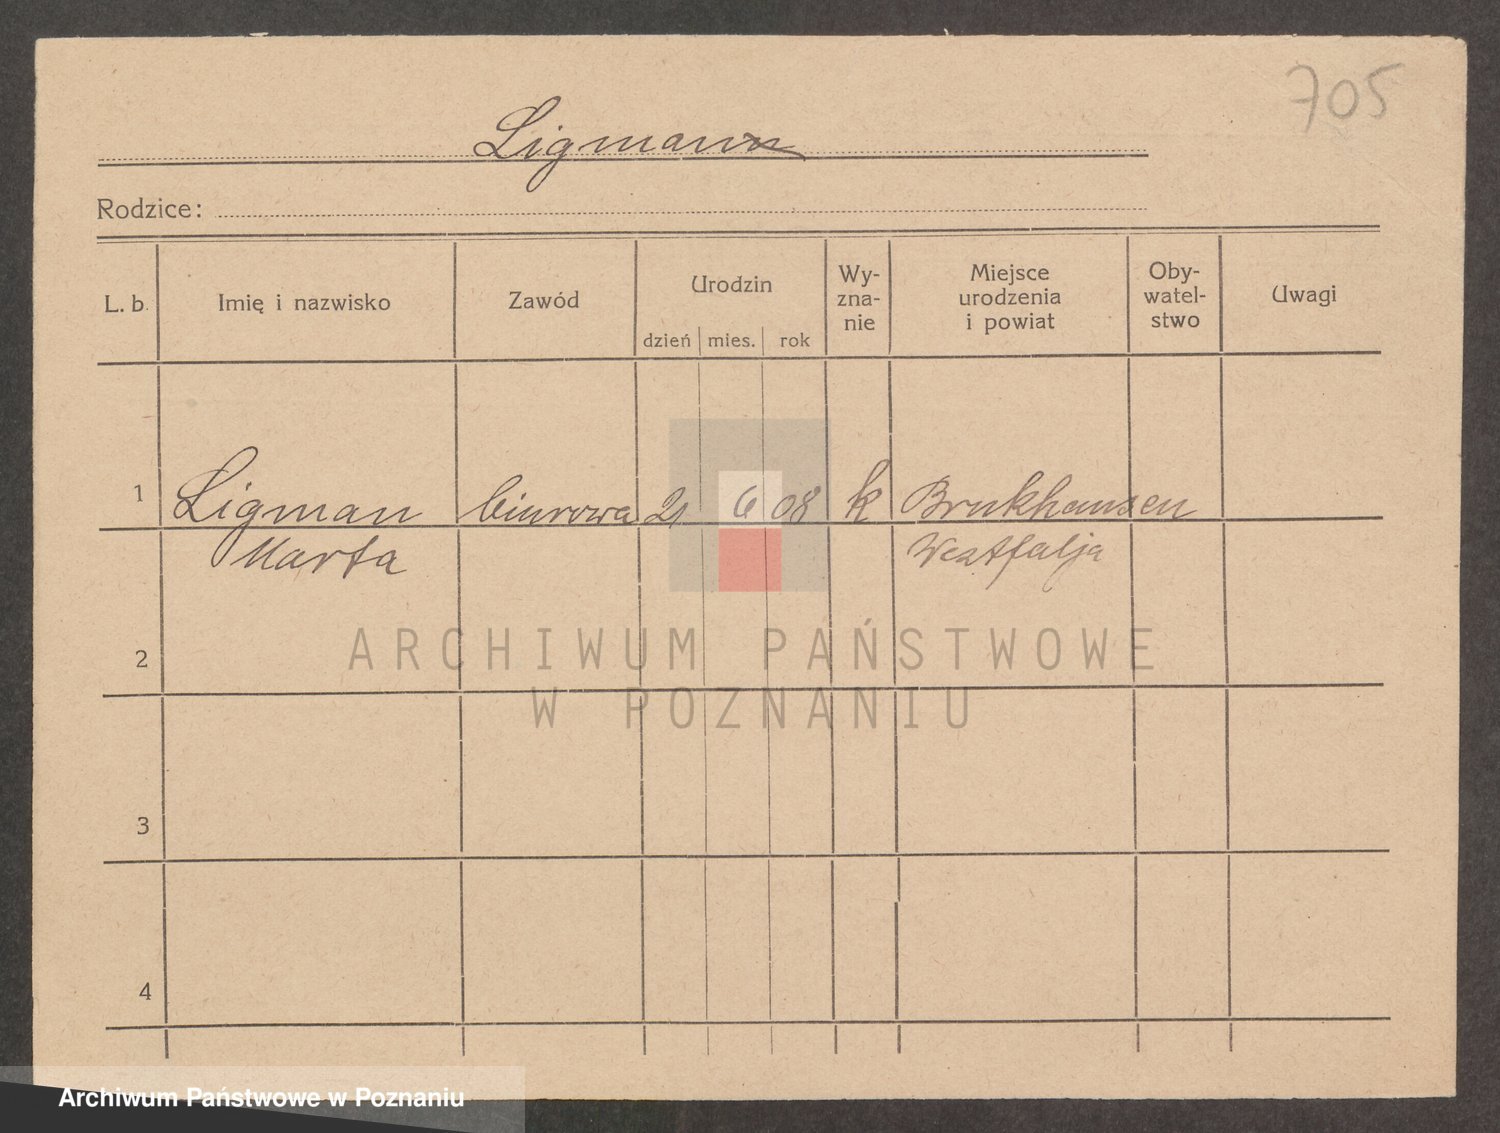 705
Ligmann
Rodzice:
L. b.
Imię i nazwisko
Zawód
Urodzin
dzień mies. rok
Wy-
zna-
nie
Miejsce
urodzenia
i powiat
Oby-
watel-
stwo
Uwagi
1 Ligman biurowa 21 6 08 k Brukhausen
Marta Westfalja
2
3
4
ARCHIWUM PAŃSTWOWE
W POZNANIU
Archiwum Państwowe w Poznaniu